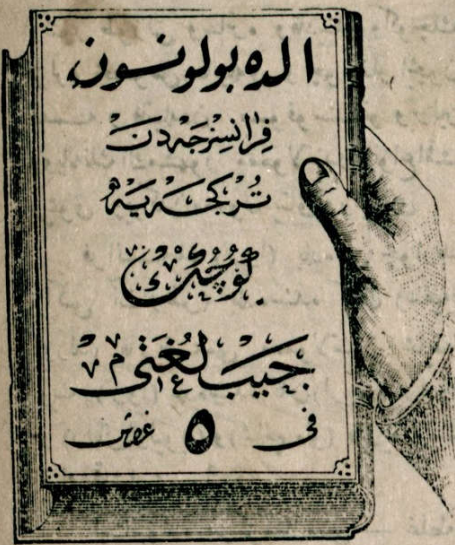 الده بولونسون
فرانسزجەدن
تركجەيە
كوچك
جيب لغتى
فى ٥ غروش